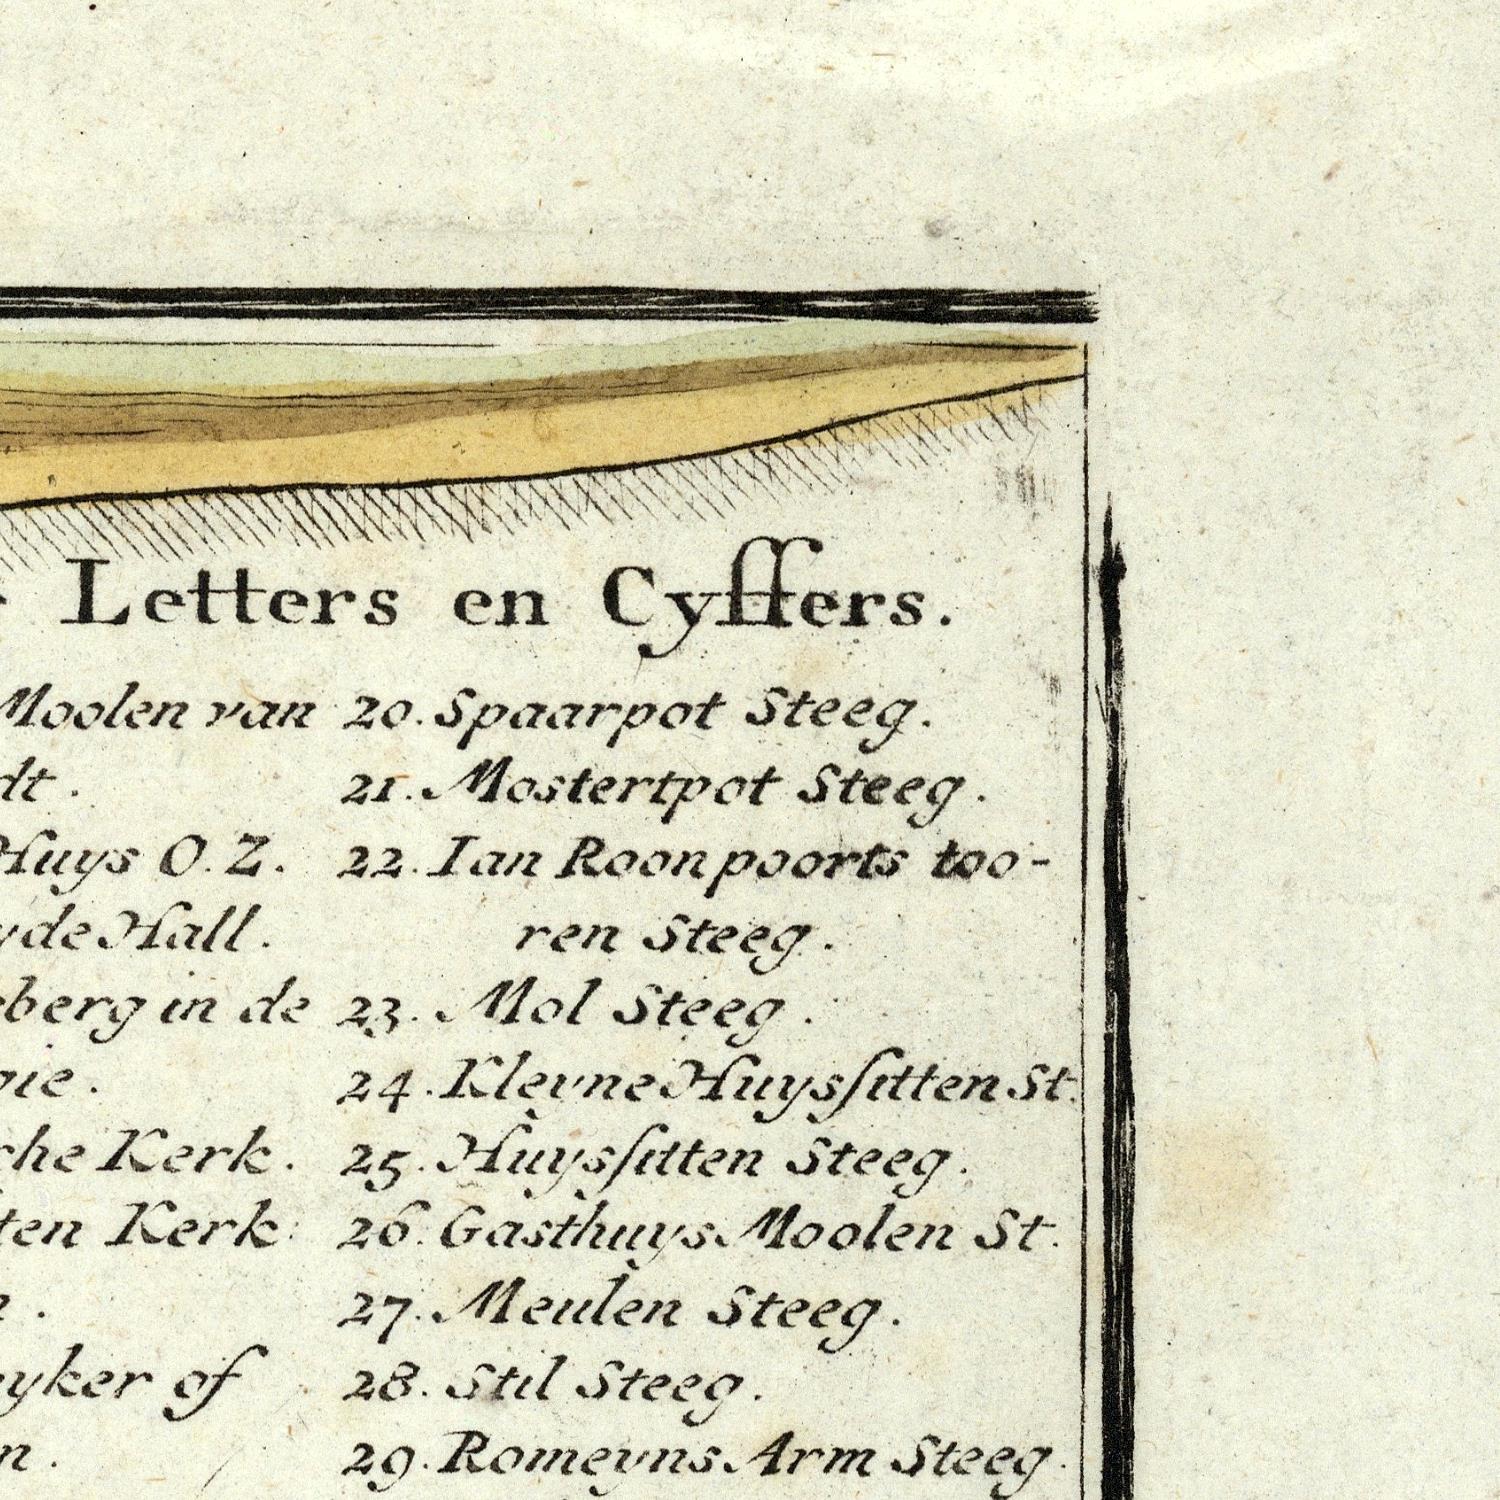 Letters en Cyffers.
Moolen van
dt.
Huys O.Z.
yde Hall.
berg in de
gie.
sche Kerk.
ten Kerk.
yker of
n.
20. Spaarpot Steeg.
21. Mostertpot Steeg.
22. Ian Roonpoorts too-
ren Steeg.
23. Mol Steeg.
24. Kleyne Huysſitten St.
25. Huysſitten Steeg.
26. Gasthuys Moolen St.
27. Meulen Steeg.
28. Stil Steeg.
29. Romeyns Arm Steeg.